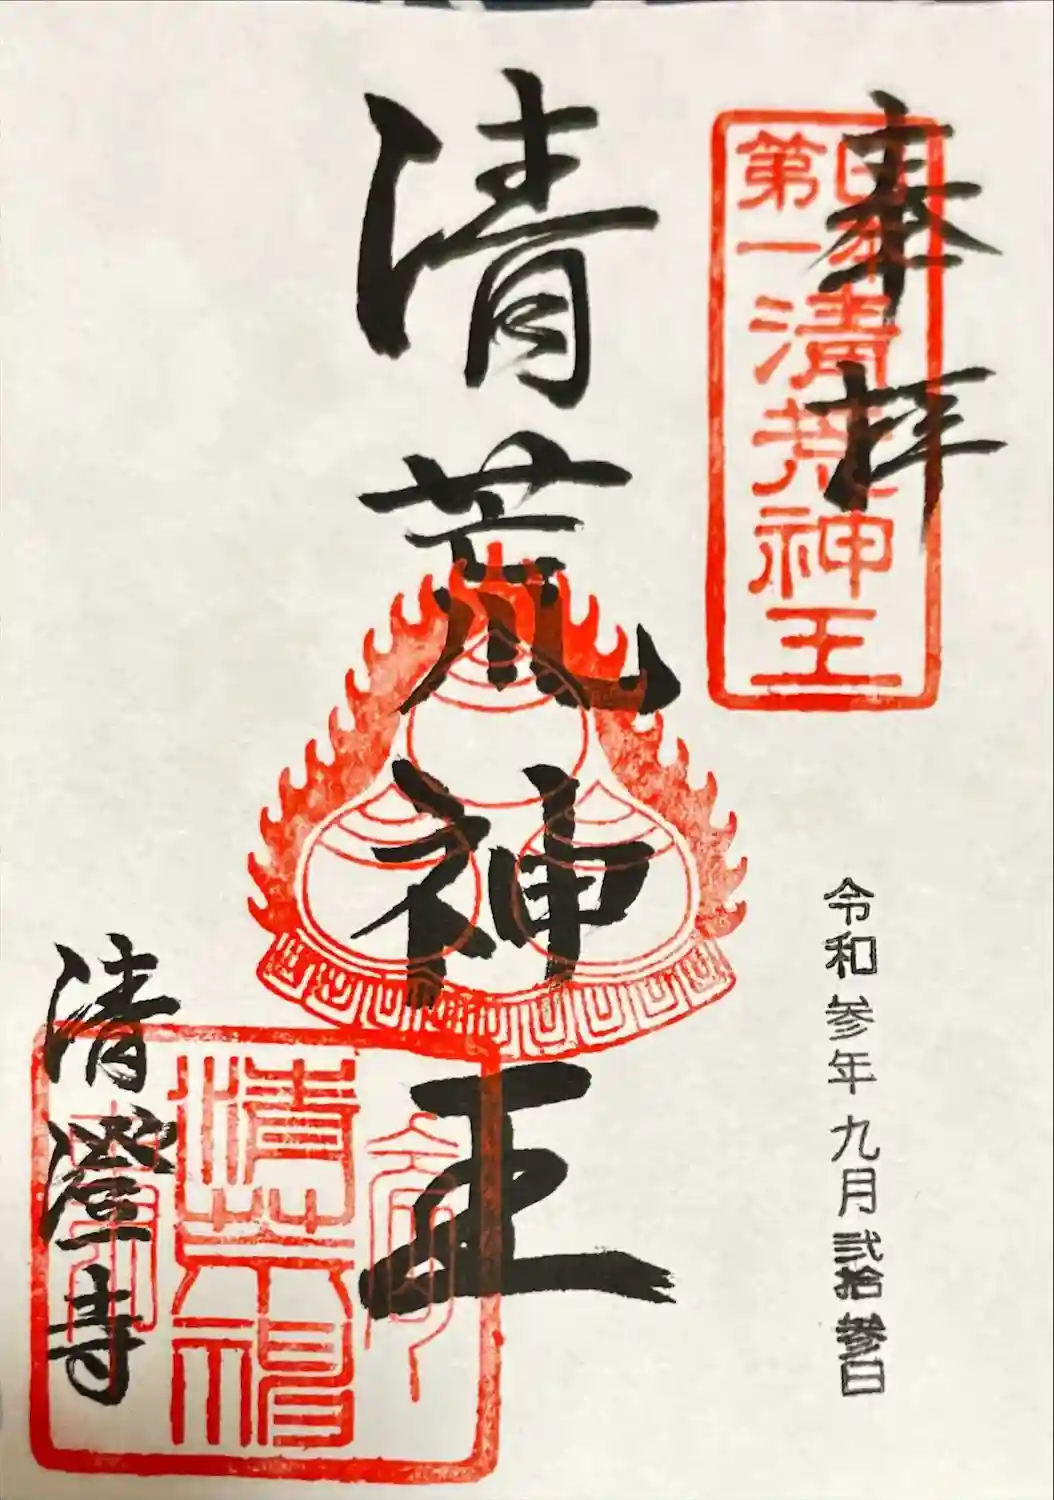 奉拝
日本
第一
清荒神王
令和参年九月弐拾参日
清荒神王
清澄寺